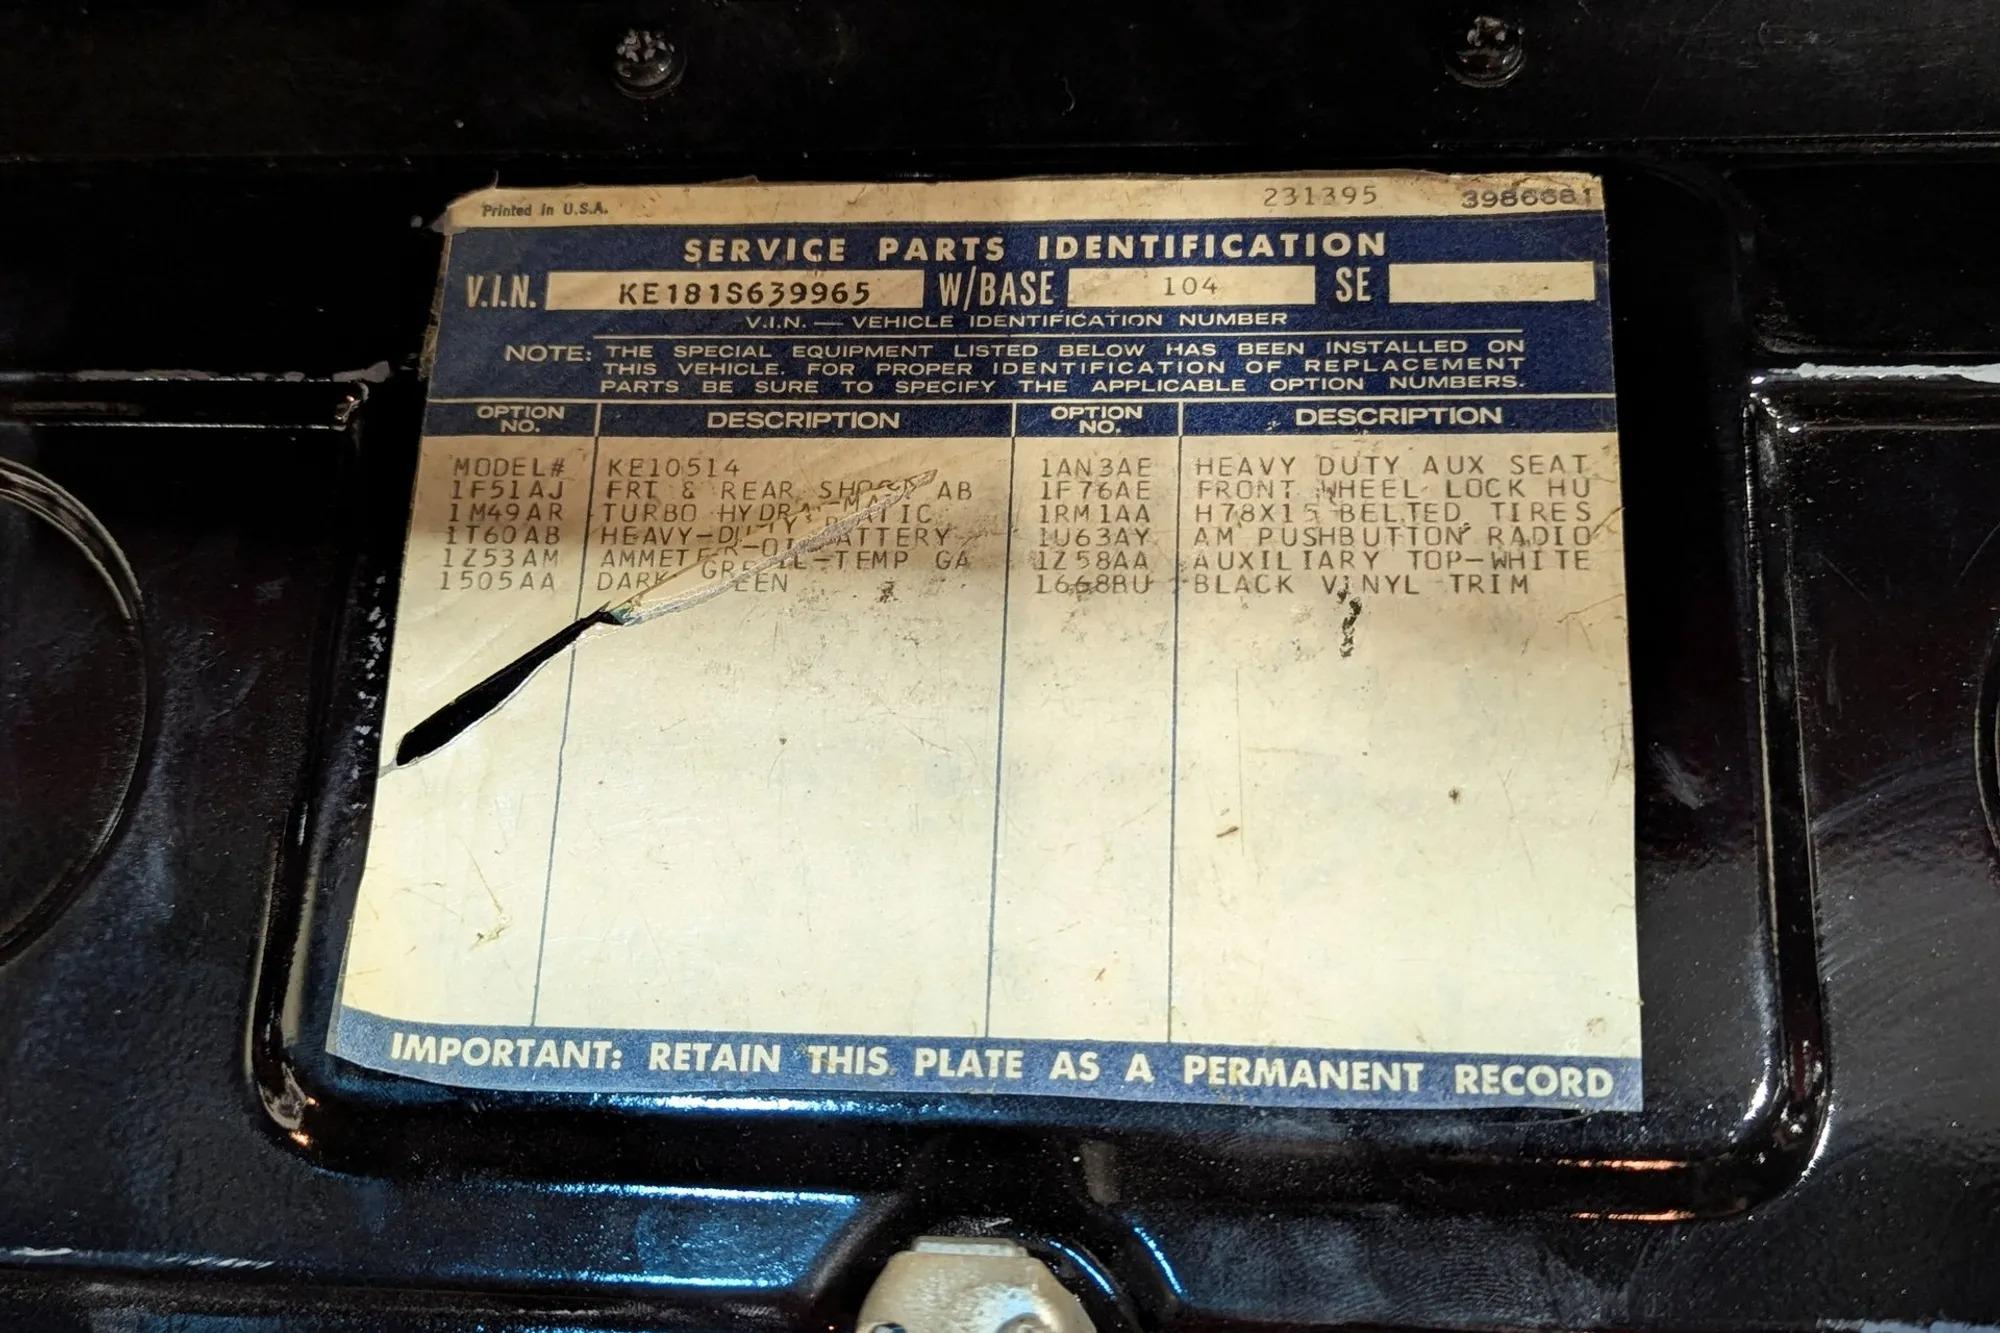 Printed in U.S.A. 231395 3986681
SERVICE PARTS IDENTIFICATION
V.I.N. KE181S639965 W/BASE 104 SE
V.I.N. — VEHICLE IDENTIFICATION NUMBER
NOTE: THE SPECIAL EQUIPMENT LISTED BELOW HAS BEEN INSTALLED ON
THIS VEHICLE. FOR PROPER IDENTIFICATION OF REPLACEMENT
PARTS BE SURE TO SPECIFY THE APPLICABLE OPTION NUMBERS.
OPTION NO. DESCRIPTION OPTION NO. DESCRIPTION
MODEL# KE10514 1AN3AE HEAVY DUTY AUX SEAT
1F51AJ FRT & REAR SHOCK AB 1F76AE FRONT WHEEL LOCK HU
1M49AR TURBO HYDRA-MATIC 1RM1AA H78X15 BELTED TIRES
1T60AB HEAVY-DUTY BATTERY 1U63AY AM PUSHBUTTON RADIO
1Z53AM AMMETER-OIL-TEMP GA 1Z58AA AUXILIARY TOP-WHITE
1505AA DARK GREEN 1668BU BLACK VINYL TRIM
IMPORTANT: RETAIN THIS PLATE AS A PERMANENT RECORD